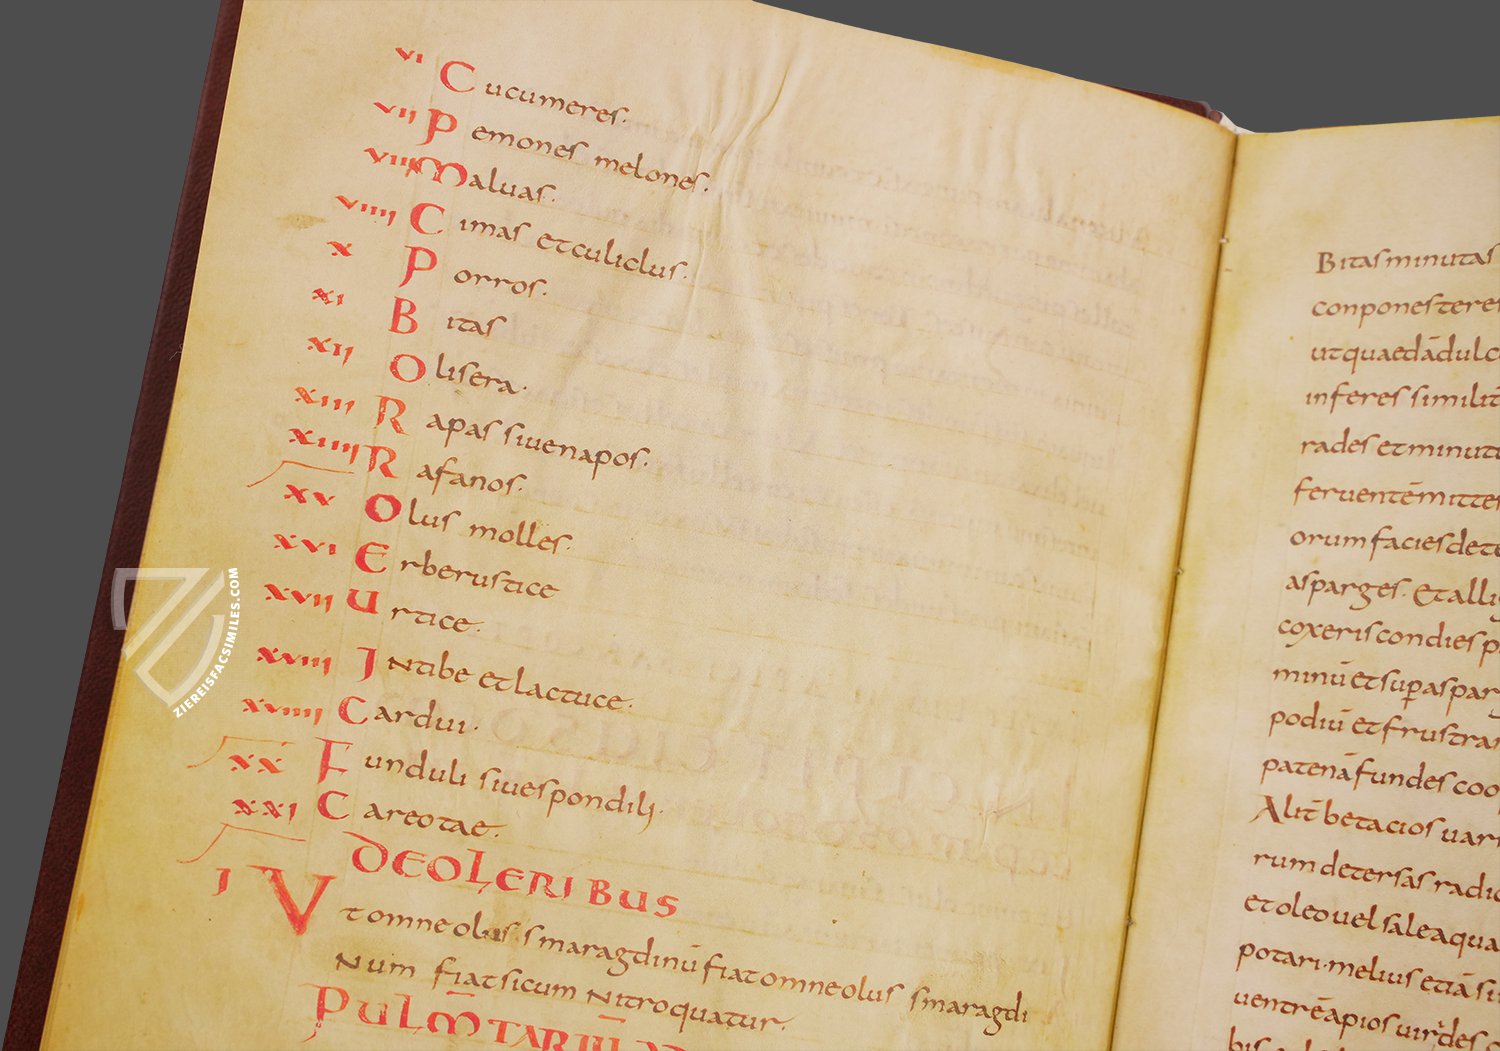 vi Cucumeres.
vii Pemones melones.
viii Maluas.
viiii Cimas etculiclus.
x Porros.
xi Bitas
xii Olisera.
xiii Rapas siuenapos.
xiiii Rafanos.
xv Olus molles.
xvi Erberustice
xvii Urtice.
xviii Intibe etlactuce.
xviiii Cardui.
xx Funduli siuespondili.
xxi Careotae.
DEOLERIBUS
I Vtomneolus smaragdinūfiatomneolus smaragdi
Num fiatsicum Nitroquatur.
Bitasminutas
conponesteres
utquaedādulc
inferes similit
rades etminut
feruentēmittes
orumfaciesdete
asparges. Etalli
coxeriscondies p
minū etsup aspar
podiū etfrustra
patenāfundes coo
Alit betacios uar
rum detersas radi
etoleouelsaleaqua
potari.melius etiā si
uentrēapios uirides
ZIEREISFACSIMILES.COM